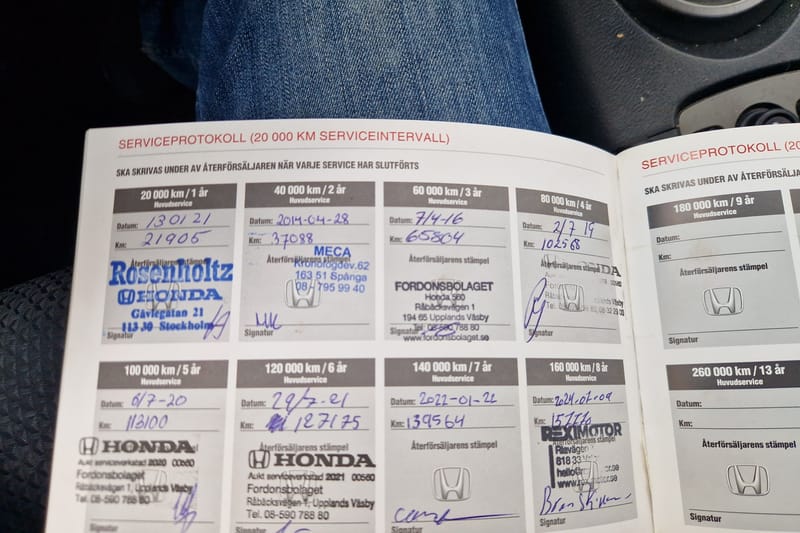 SERVICEPROTOKOLL (20 000 KM SERVICEINTERVALL)
SKA SKRIVAS UNDER AV ÅTERFÖRSÄLJAREN NÄR VARJE SERVICE HAR SLUTFÖRTS
20 000 km / 1 år
Huvudservice
Datum: 130121
Km: 21905
Återförsäljarens stämpel
Rosenholtz
HONDA
Gävlegatan 21
113 30 Stockholm
Signatur
40 000 km / 2 år
Huvudservice
Datum: 2014-04-28
Km: 37088
MECA
Kronologdev.62
163 51 Spånga
08-795 99 40
Signatur
60 000 km / 3 år
Huvudservice
Datum: 7/4-16
Km: 65804
Återförsäljarens stämpel
FORDONSBOLAGET
Honda 560
Råbäcksvägen 1
194 65 Upplands Väsby
Tel. 08-590 788 80
www.fordonsbolaget.se
80 000 km / 4 år
Huvudservice
Datum: 2/7 19
Km: 102568
Återförsäljarens stämpel
Signatur
100 000 km / 5 år
Huvudservice
Datum: 6/7-20
Km: 113100
HONDA
Aukt serviceverkstad 2020 00560
Fordonsbolaget
Råbäcksvägen 1, Upplands Väsby
Tel. 08-590 788 80
120 000 km / 6 år
Huvudservice
Datum: 29/7-21
Km: 127175
Återförsäljarens stämpel
HONDA
Aukt serviceverkstad 2021 00560
Fordonsbolaget
Råbäcksvägen 1, Upplands Väsby
Tel. 08-590 788 80
140 000 km / 7 år
Huvudservice
Datum: 2022-01-22
Km: 139564
Återförsäljarens stämpel
Signatur
160 000 km / 8 år
Huvudservice
Datum: 2024-07-09
Km:
REXIMOTOR
Återförsäljarens stämpel
818 33
Signatur
SERVICEPROTOKOLL (20
SKA SKRIVAS UNDER AV ÅTERFÖRSÄLJA
180 000 km / 9 år
Huvudservice
Datum:
Km:
Återförsäljarens stämpel
Signatur
260 000 km / 13 år
Huvudservice
Datum:
Km:
Återförsäljarens stämpel
Signatur